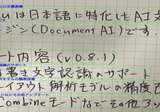 いは日本語に特化したAI文
ジン(Document AI)です
ート内容(v0.8.1)
書き文字認識のサポート
イアウト解析モデルの精度
Combineモードなどその他